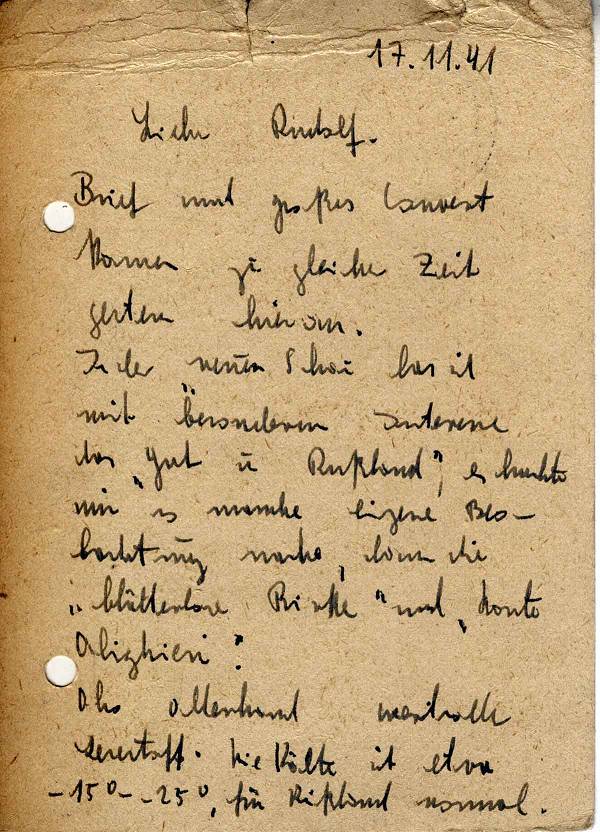 17.11.41
Lieber Rudolf.
Brief und großes Couvert
kamen zu gleicher Zeit
gestern hier an.
In der neuen Schau las ich
mit besonderem Interesse
das „Gut in Rußland", es brachte
mir so manche eigene Beo-
bachtung nahe, dann die
„blätterlose Birke" und „Conte
Alighieri".
Also allerhand wertvolle
Lesestoff. Die Kälte ist etwa
-15° - -25°, für Rußland normal.